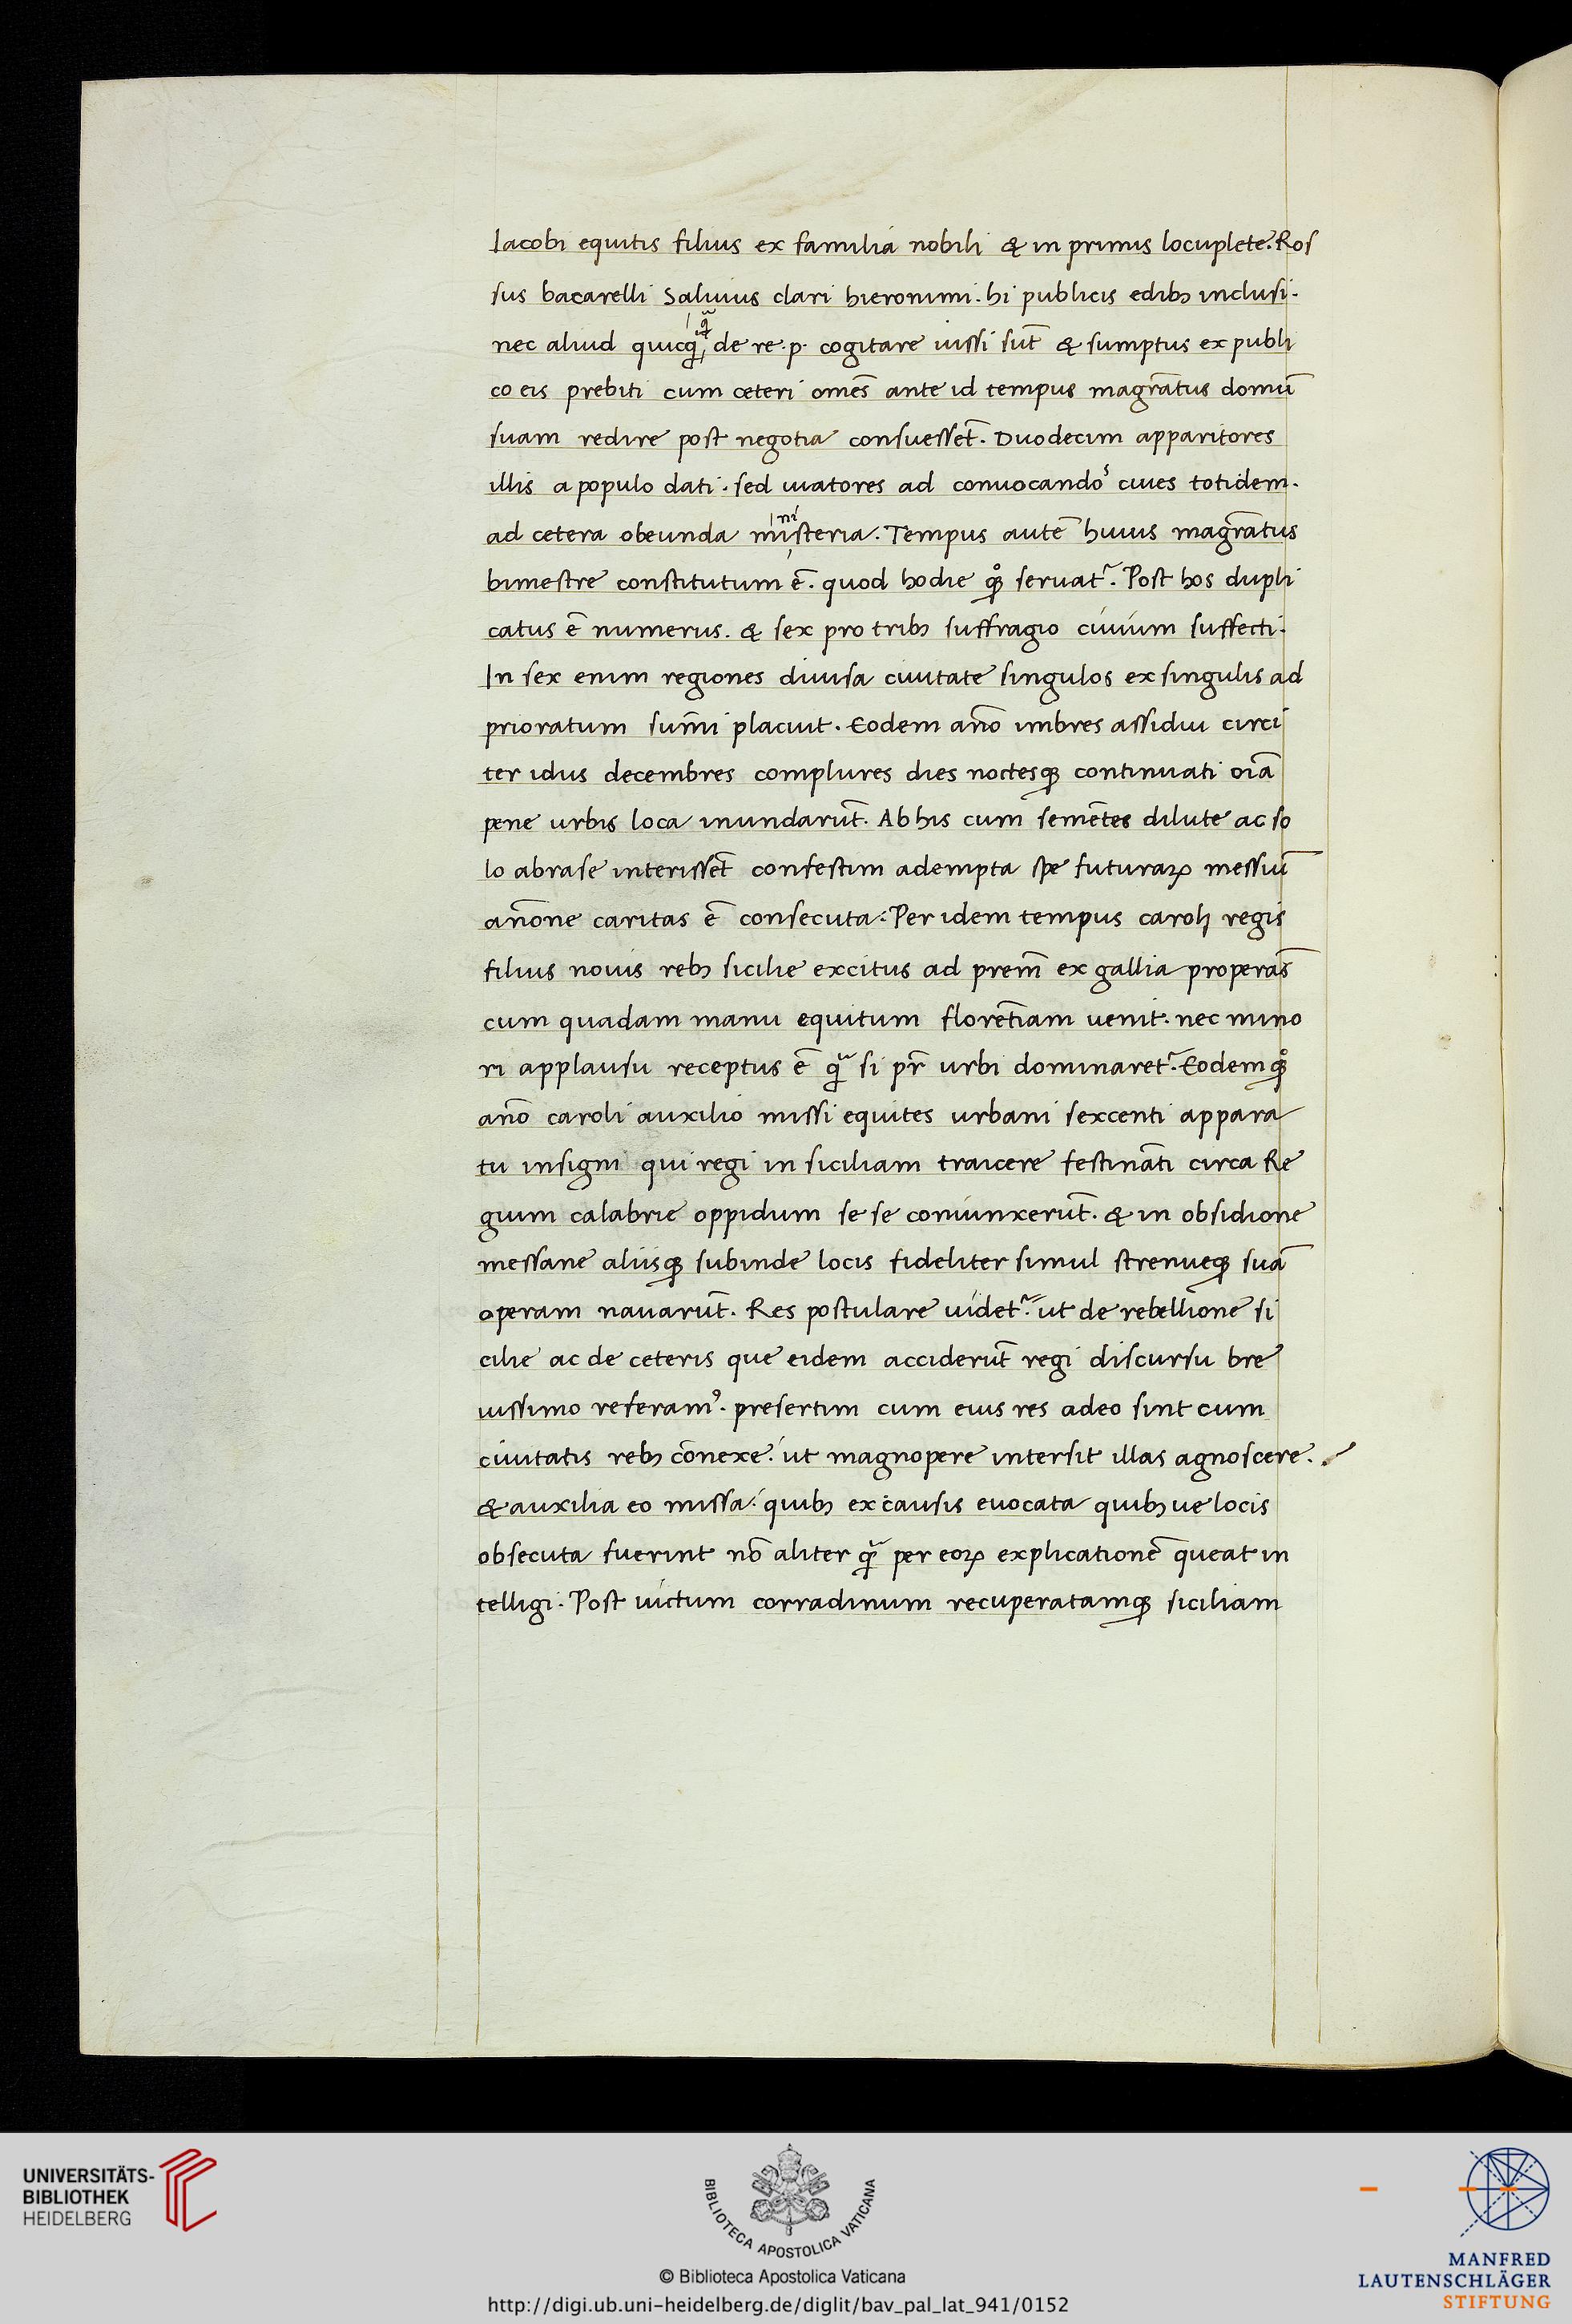 Iacobi equitis filius ex familia nobili & in primis locuplete. Ros
sus bacarelli Saluius clari hieronimi. hi publicis edibꝫ inclusi.
nec aliud quicq̃ q̃ de re. p. cogitare iussi sut̄ & sumptus ex publi
co eis prebiti cum ceteri omēs ante id tempus magr̄atus domū
suam redire post negotia consuesset̄. Duodecim apparitores
illis a populo dati. sed uiatores ad conuocandos ciues totidem.
ad cetera obeunda ministeria. Tempus autē huius magr̄atus
bimestre constitutum ē. quod hodie qꝫͦ seruatʳ. Post hos dupli
catus ē numerus. & sex pro tribꝫ suffragio ciuium suffecti.
In sex enim regiones diuisa ciuitate singulos ex singulis ad
prioratum sum̄i placuit. Eodem an̄o imbres assidui circi
ter idus decembres complures dies noctesqꝫ continuati oīa
pene urbis loca inundarut̄. Ab his cum semēt̄es dilute ac so
lo abrase interisset̄ confestim adempta spe futuraꝝ messiū
an̄one caritas ē consecuta. Per idem tempus caroli regis
filius nouis rebꝫ sicilie excitus ad prem̄ ex gallia properās
cum quadam manu equitum floret̄iam uenit. nec mino
ri applausu receptus ē q̃ si pr̄ urbi dominaretʳ. Eodem qꝫͦ
an̄o caroli auxilio missi equites urbani sexcenti appara
tu insigni qui regi in siciliam traicere festinat̄i circa Re
gium calabrie oppidum se se coniunxerut̄. & in obsidione
messane aliisqꝫ subinde locis fideliter simul strenueqꝫ suā
operam nauarut̄. Res postulare uidetʳ. ut de rebellione si
cilie ac de ceteris que eidem acciderut̄ regi discursu bre
uissimo referamꝰ. presertim cum eius res adeo sint cum
ciuitatis rebꝫ cōnexe. ut magnopere intersit illas agnoscere.
& auxilia eo missa. quibꝫ ex causis euocata quibꝫ ue locis
obsecuta fuerint nō aliter q̃ per eoꝝ explicationē queat in
telligi. Post uictum corradinum recuperatamqꝫ siciliam
UNIVERSITÄTS-
BIBLIOTHEK
HEIDELBERG
BIBLIOTECA APOSTOLICA VATICANA
© Biblioteca Apostolica Vaticana
http://digi.ub.uni-heidelberg.de/diglit/bav_pal_lat_941/0152
MANFRED
LAUTENSCHLÄGER
STIFTUNG